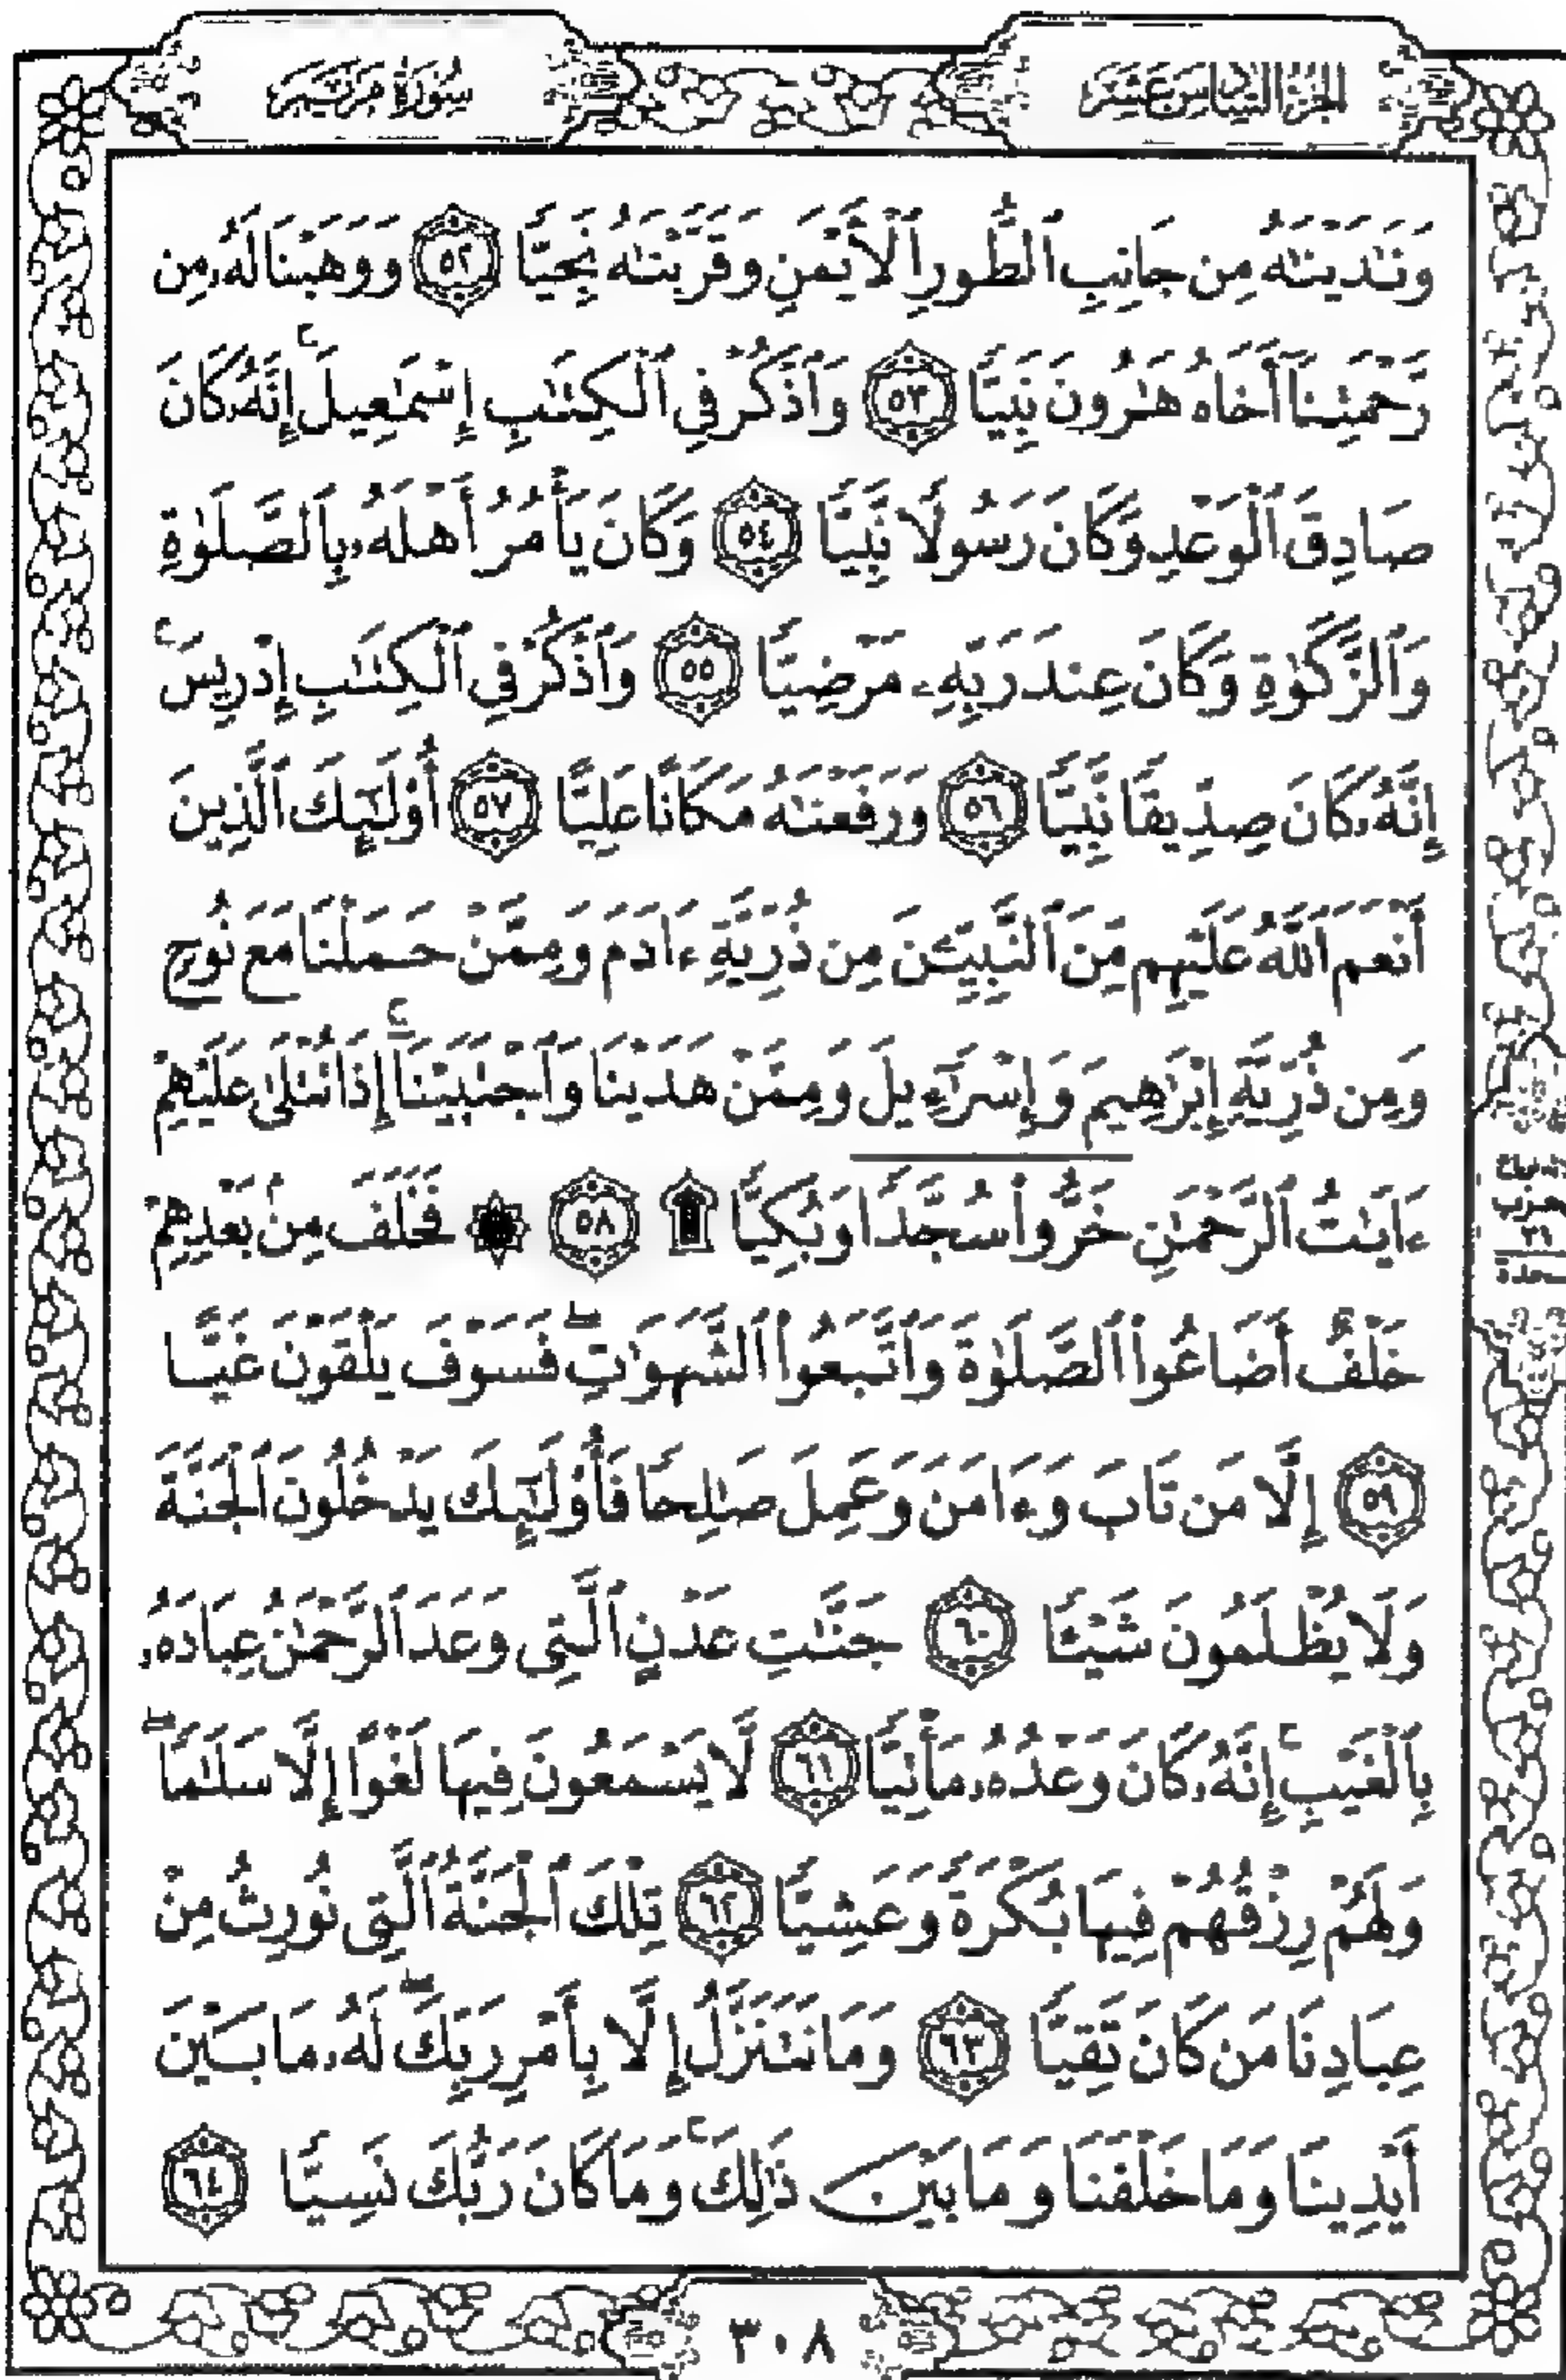 الجزء السادس عشر
سورة مريم
وَنَٰدَيْنَٰهُ مِن جَانِبِ ٱلطُّورِ ٱلْأَيْمَنِ وَقَرَّبْنَٰهُ نَجِيًّا ٥٢ وَوَهَبْنَا لَهُۥ مِن
رَّحْمَتِنَآ أَخَاهُ هَٰرُونَ نَبِيًّا ٥٣ وَٱذْكُرْ فِى ٱلْكِتَٰبِ إِسْمَٰعِيلَ ۚ إِنَّهُۥ كَانَ
صَادِقَ ٱلْوَعْدِ وَكَانَ رَسُولًا نَّبِيًّا ٥٤ وَكَانَ يَأْمُرُ أَهْلَهُۥ بِٱلصَّلَوٰةِ
وَٱلزَّكَوٰةِ وَكَانَ عِندَ رَبِّهِۦ مَرْضِيًّا ٥٥ وَٱذْكُرْ فِى ٱلْكِتَٰبِ إِدْرِيسَ ۚ
إِنَّهُۥ كَانَ صِدِّيقًا نَّبِيًّا ٥٦ وَرَفَعْنَٰهُ مَكَانًا عَلِيًّا ٥٧ أُو۟لَٰٓئِكَ ٱلَّذِينَ
أَنْعَمَ ٱللَّهُ عَلَيْهِم مِّنَ ٱلنَّبِيِّـۧنَ مِن ذُرِّيَّةِ ءَادَمَ وَمِمَّنْ حَمَلْنَا مَعَ نُوحٍ
وَمِن ذُرِّيَّةِ إِبْرَٰهِيمَ وَإِسْرَٰٓءِيلَ وَمِمَّنْ هَدَيْنَا وَٱجْتَبَيْنَآ ۚ إِذَا تُتْلَىٰ عَلَيْهِمْ
ءَايَٰتُ ٱلرَّحْمَٰنِ خَرُّوا۟ سُجَّدًا وَبُكِيًّا ۩ ٥٨ ۞ فَخَلَفَ مِنۢ بَعْدِهِمْ
خَلْفٌ أَضَاعُوا۟ ٱلصَّلَوٰةَ وَٱتَّبَعُوا۟ ٱلشَّهَوَٰتِ ۖ فَسَوْفَ يَلْقَوْنَ غَيًّا
٥٩ إِلَّا مَن تَابَ وَءَامَنَ وَعَمِلَ صَٰلِحًا فَأُو۟لَٰٓئِكَ يَدْخُلُونَ ٱلْجَنَّةَ
وَلَا يُظْلَمُونَ شَيْـًٔا ٦٠ جَنَّٰتِ عَدْنٍ ٱلَّتِى وَعَدَ ٱلرَّحْمَٰنُ عِبَادَهُۥ
بِٱلْغَيْبِ ۚ إِنَّهُۥ كَانَ وَعْدُهُۥ مَأْتِيًّا ٦١ لَّا يَسْمَعُونَ فِيهَا لَغْوًا إِلَّا سَلَٰمًا ۖ
وَلَهُمْ رِزْقُهُمْ فِيهَا بُكْرَةً وَعَشِيًّا ٦٢ تِلْكَ ٱلْجَنَّةُ ٱلَّتِى نُورِثُ مِنْ
عِبَادِنَا مَن كَانَ تَقِيًّا ٦٣ وَمَا نَتَنَزَّلُ إِلَّا بِأَمْرِ رَبِّكَ ۖ لَهُۥ مَا بَيْنَ
أَيْدِينَا وَمَا خَلْفَنَا وَمَا بَيْنَ ذَٰلِكَ ۚ وَمَا كَانَ رَبُّكَ نَسِيًّا ٦٤
٣٠٨